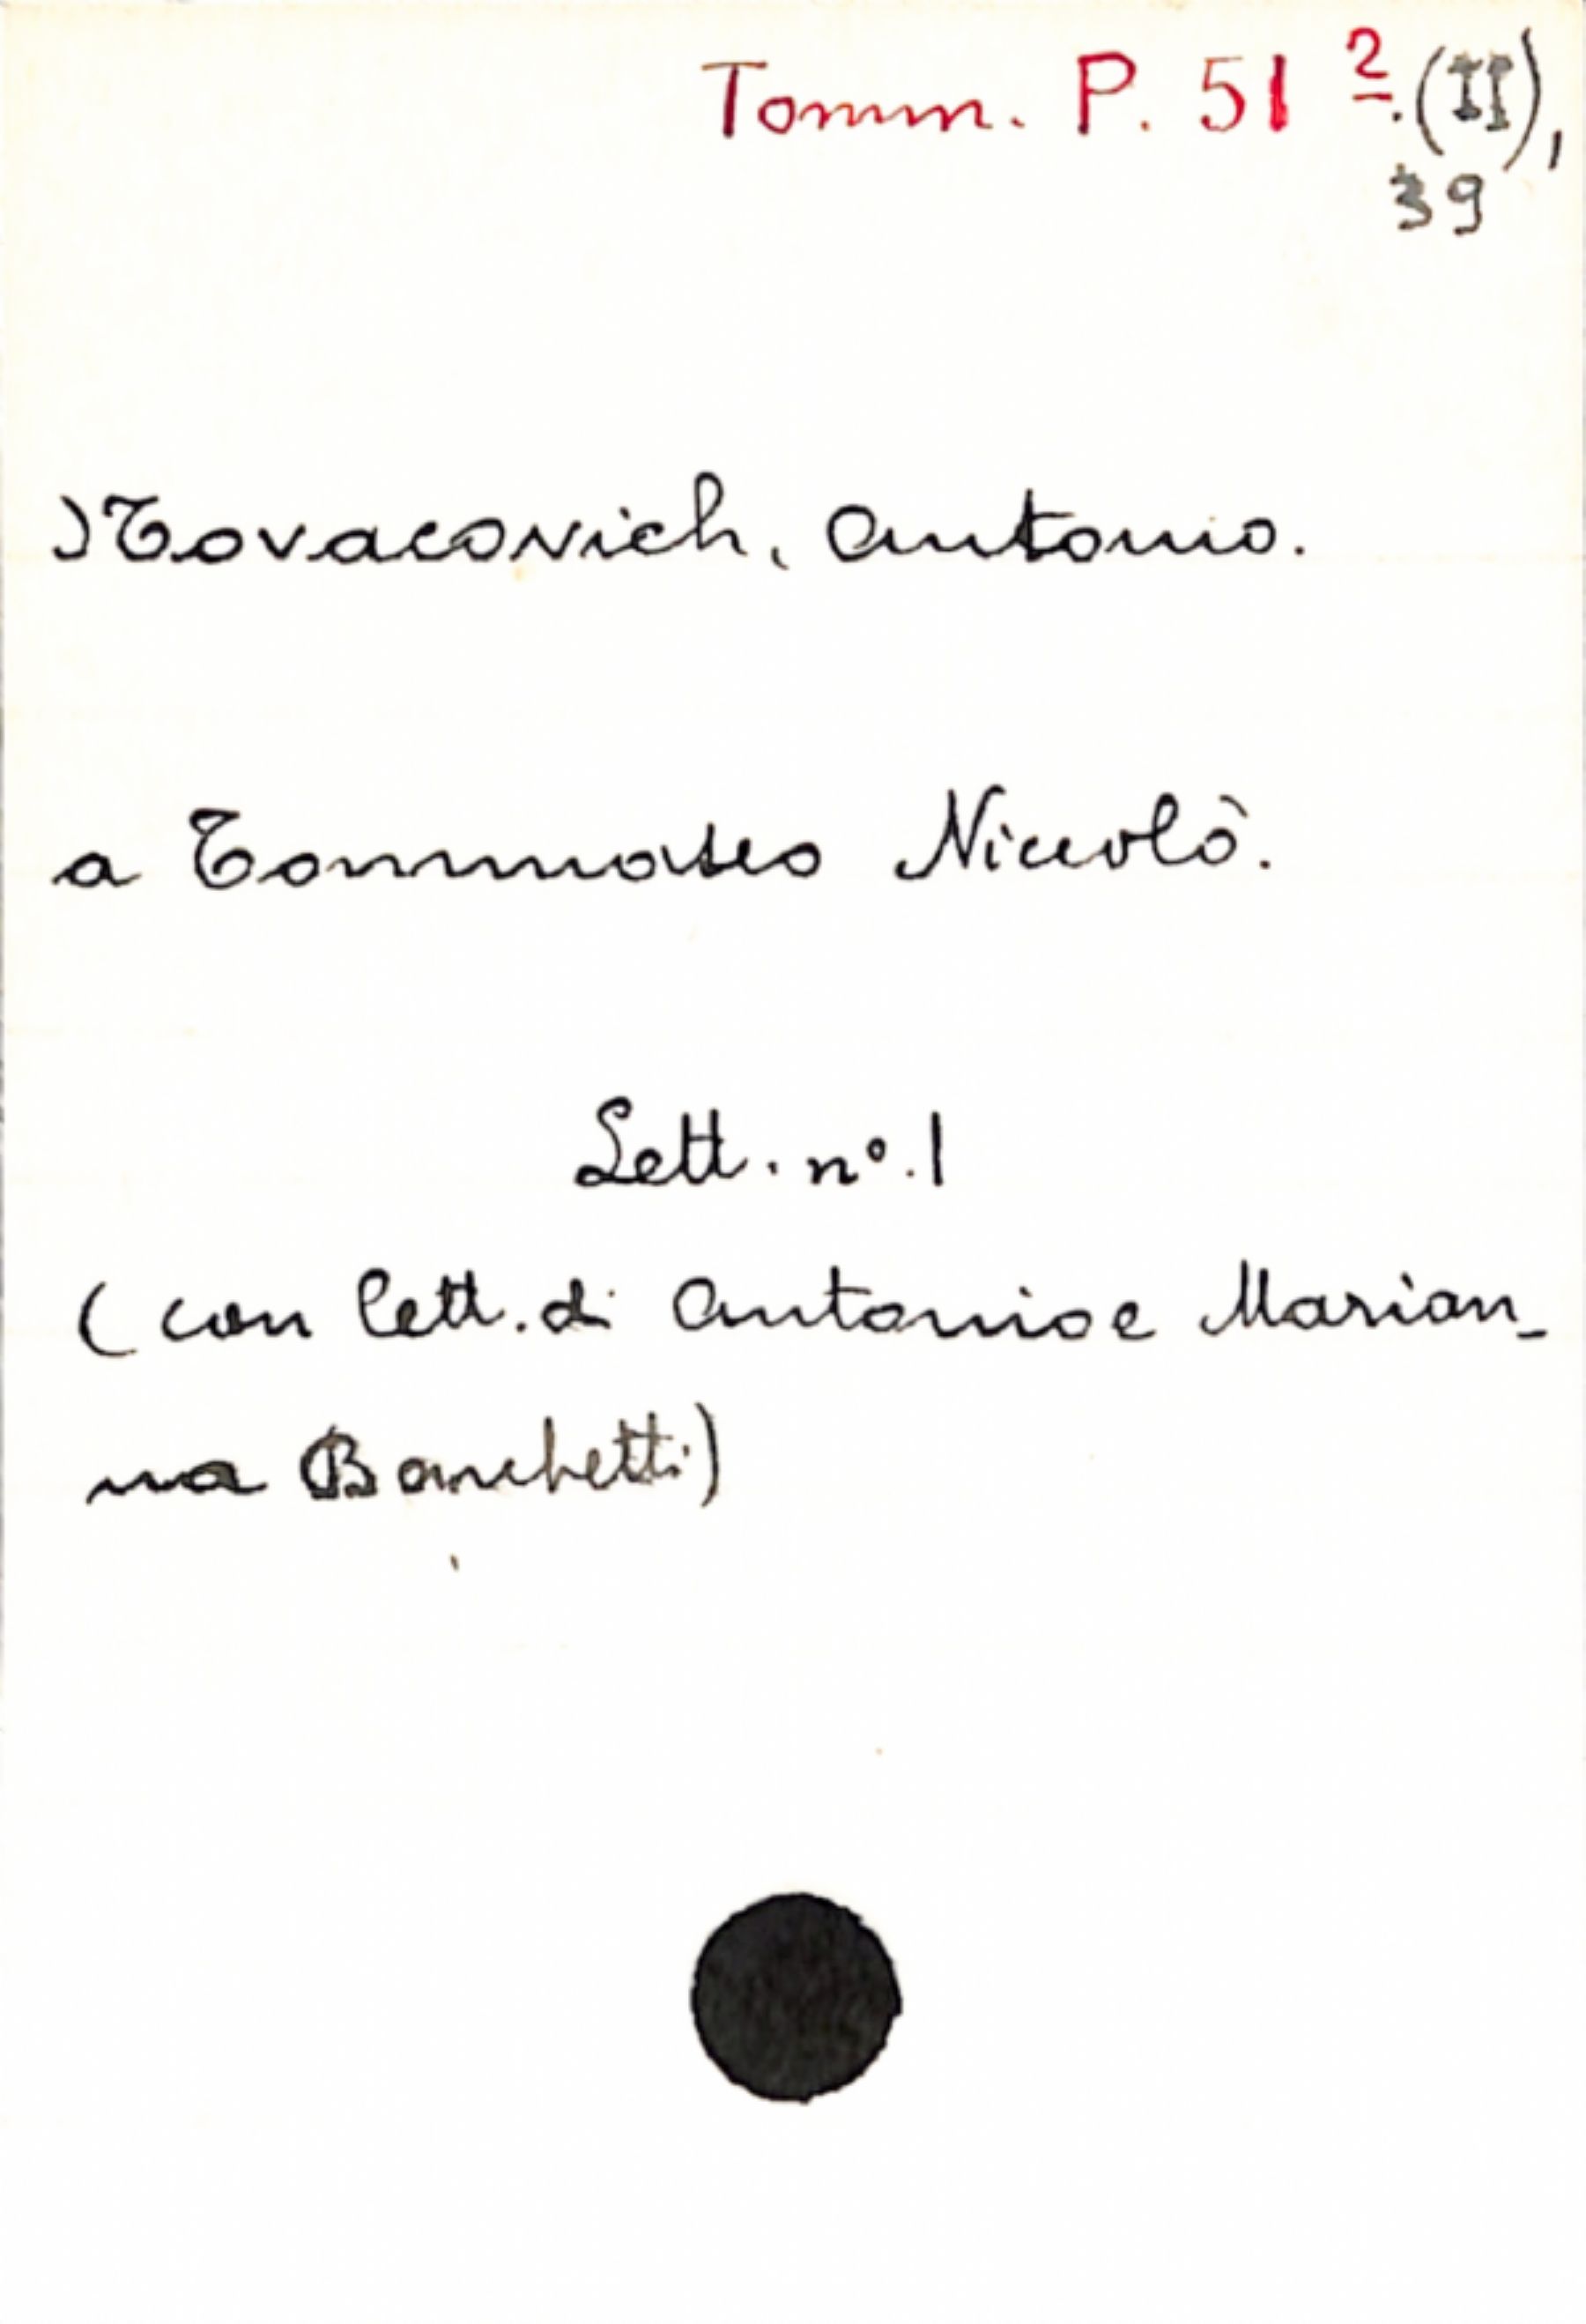 Tomm. P. 51 2.(II),
39
Kovacovich, Antonio.
a Tommaseo Niccolò.
Lett. n°. 1
(con lett. di Antonio e Marian-
na Banchetti)